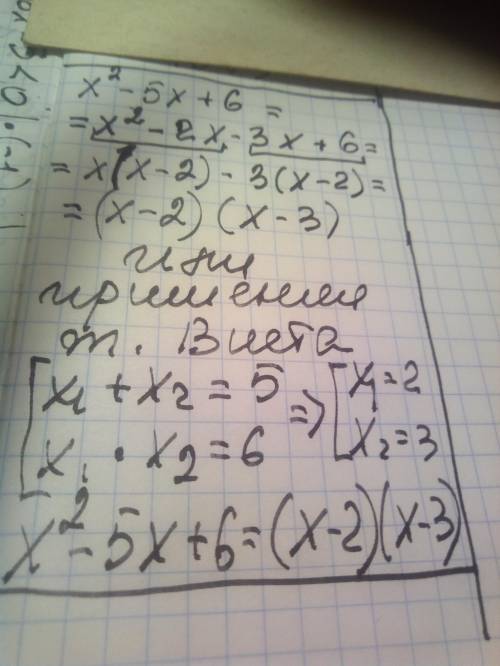 x² - 5x + 6 =
= x² - 2x - 3x + 6 =
= x(x-2) - 3(x-2) =
= (x-2) (x-3)
или
применим
т. Виета
x₁ + x₂ = 5 => x₁ = 2
x₁ · x₂ = 6 x₂ = 3
x² - 5x + 6 = (x-2)(x-3)